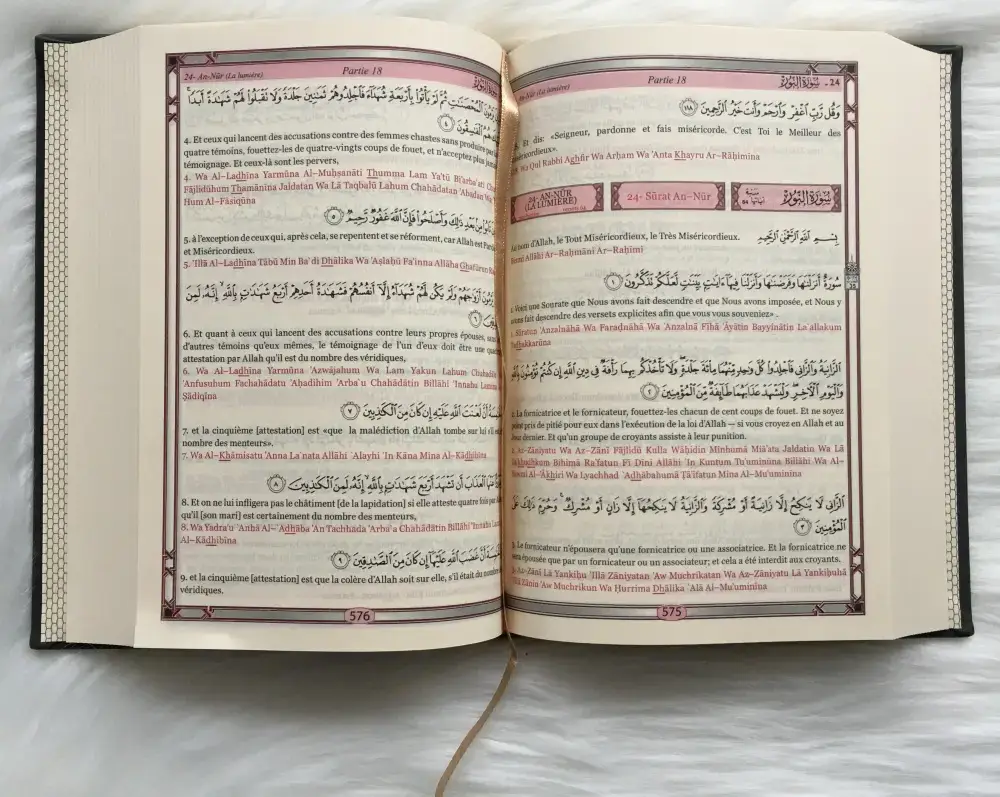 An-Nûr (La lumière)
Partie 18
24 - سُورَةُ النُّورِ
وَقُل رَّبِّ ٱغْفِرْ وَٱرْحَمْ وَأَنتَ خَيْرُ ٱلرَّٰحِمِينَ ١١٨
Et dis: «Seigneur, pardonne et fais miséricorde. C'est Toi le Meilleur des
miséricordieux».
Wa Qul Rabbi Aghfir Wa Arĥam Wa 'Anta Khayru Ar–Rāĥimīna
24- AN-NÛR
(LA LUMIÈRE)
versets 64
24- Sūrat An–Nūr
سُورَةُ النُّورِ
Au nom d'Allah, le Tout Miséricordieux, le Très Miséricordieux.
بِسْمِ ٱللَّهِ ٱلرَّحْمَٰنِ ٱلرَّحِيمِ
Bismi Allāhi Ar–Raĥmāni Ar–Raĥīmi
سُورَةٌ أَنزَلْنَٰهَا وَفَرَضْنَٰهَا وَأَنزَلْنَا فِيهَآ ءَايَٰتٍۭ بَيِّنَٰتٍ لَّعَلَّكُمْ تَذَكَّرُونَ ١
1. Voici une Sourate que Nous avons fait descendre et que Nous avons imposée, et Nous y
avons fait descendre des versets explicites afin que vous vous souveniez» .
1. Sūratun 'Anzalnāhā Wa Faraḍnāhā Wa 'Anzalnā Fīhā 'Āyātin Bayyinātin La`allakum
Tadhakkarūna
ٱلزَّانِيَةُ وَٱلزَّانِى فَٱجْلِدُوا۟ كُلَّ وَٰحِدٍ مِّنْهُمَا مِا۟ئَةَ جَلْدَةٍ وَلَا تَأْخُذْكُم بِهِمَا رَأْفَةٌ فِى دِينِ ٱللَّهِ إِن كُنتُمْ تُؤْمِنُونَ بِٱللَّهِ
وَٱلْيَوْمِ ٱلْءَاخِرِ وَلْيَشْهَدْ عَذَابَهُمَا طَآئِفَةٌ مِّنَ ٱلْمُؤْمِنِينَ ٢
2. La fornicatrice et le fornicateur, fouettez-les chacun de cent coups de fouet. Et ne soyez
point pris de pitié pour eux dans l'exécution de la loi d'Allah — si vous croyez en Allah et au
Jour dernier. Et qu'un groupe de croyants assiste à leur punition.
2. Az–Zāniyatu Wa Az–Zānī Fājlidū Kulla Wāĥidin Minhumā Miā'ata Jaldatin Wa Lā
Ta'khudhkum Bihimā Ra'fatun Fī Dīni Allāhi 'In Kuntum Tu'uminūna Billāhi Wa Al–
Yawmi Al–'Ākhiri Wa Lyachhad `Adhābahumā Ţā'ifatun Mina Al–Mu'uminīna
ٱلزَّانِى لَا يَنكِحُ إِلَّا زَانِيَةً أَوْ مُشْرِكَةً وَٱلزَّانِيَةُ لَا يَنكِحُهَآ إِلَّا زَانٍ أَوْ مُشْرِكٌ وَحُرِّمَ ذَٰلِكَ عَلَى
ٱلْمُؤْمِنِينَ ٣
3. Le fornicateur n'épousera qu'une fornicatrice ou une associatrice. Et la fornicatrice ne
sera épousée que par un fornicateur ou un associateur; et cela a été interdit aux croyants.
3. Az–Zānī Lā Yankiĥu 'Illā Zāniyatan 'Aw Muchrikatan Wa Az–Zāniyatu Lā Yankiĥuhā
'Illā Zānin 'Aw Muchrikun Wa Ĥurrima Dhālika `Alá Al–Mu'uminīna
575
24- An-Nûr (La lumière)
Partie 18
ٱلْمُحْصَنَٰتِ ثُمَّ لَمْ يَأْتُوا۟ بِأَرْبَعَةِ شُهَدَآءَ فَٱجْلِدُوهُمْ ثَمَٰنِينَ جَلْدَةً وَلَا تَقْبَلُوا۟ لَهُمْ شَهَٰدَةً أَبَدًا
هُمُ ٱلْفَٰسِقُونَ ٤
4. Et ceux qui lancent des accusations contre des femmes chastes sans produire par
quatre témoins, fouettez-les de quatre-vingts coups de fouet, et n'acceptez plus jamais
témoignage. Et ceux-là sont les pervers,
4. Wa Al–Ladhīna Yarmūna Al–Muĥşanāti Thumma Lam Ya'tū Bi'arba`ati
Fājlidūhum Thamānīna Jaldatan Wa Lā Taqbalū Lahum Chahādatan 'Abadan
Hum Al–Fāsiqūna
تَابُوا۟ مِنۢ بَعْدِ ذَٰلِكَ وَأَصْلَحُوا۟ فَإِنَّ ٱللَّهَ غَفُورٌ رَّحِيمٌ ٥
5. à l'exception de ceux qui, après cela, se repentent et se réforment, car Allah est
et Miséricordieux.
5. 'Illā Al–Ladhīna Tābū Min Ba`di Dhālika Wa 'Aşlaĥū Fa'inna Allāha Ghafūrun
يَرْمُونَ أَزْوَٰجَهُمْ وَلَمْ يَكُن لَّهُمْ شُهَدَآءُ إِلَّآ أَنفُسُهُمْ فَشَهَٰدَةُ أَحَدِهِمْ أَرْبَعُ شَهَٰدَٰتٍۭ بِٱللَّهِ إِنَّهُۥ لَمِنَ
٦
6. Et quant à ceux qui lancent des accusations contre leurs propres épouses, sans
d'autres témoins qu'eux mêmes, le témoignage de l'un d'eux doit être une
attestation par Allah qu'il est du nombre des véridiques,
6. Wa Al–Ladhīna Yarmūna 'Azwājahum Wa Lam Yakun Lahum
'Anfusuhum Fachahādatu 'Aĥadihim 'Arba`u Chahādātin Billāhi 'Innahu Lamina
Şādiqīna
أَنَّ لَعْنَتَ ٱللَّهِ عَلَيْهِ إِن كَانَ مِنَ ٱلْكَٰذِبِينَ ٧
7. et la cinquième [attestation] est «que la malédiction d'Allah tombe sur lui s'il est
nombre des menteurs».
7. Wa Al–Khāmisatu 'Anna La`nata Allāhi `Alayhi 'In Kāna Mina Al–Kādhibīna
عَنْهَا ٱلْعَذَابَ أَن تَشْهَدَ أَرْبَعَ شَهَٰدَٰتٍۭ بِٱللَّهِ إِنَّهُۥ لَمِنَ ٱلْكَٰذِبِينَ ٨
8. Et on ne lui infligera pas le châtiment [de la lapidation] si elle atteste quatre fois
qu'il [son mari] est certainement du nombre des menteurs,
8. Wa Yadra'u `Anhā Al–`Adhāba 'An Tachhada 'Arba`a Chahādātin Billāhi 'Innahu
Al–Kādhibīna
أَنَّ غَضَبَ ٱللَّهِ عَلَيْهَآ إِن كَانَ مِنَ ٱلصَّٰدِقِينَ ٩
9. et la cinquième [attestation] est que la colère d'Allah soit sur elle, s'il était du nombre
véridiques.
576